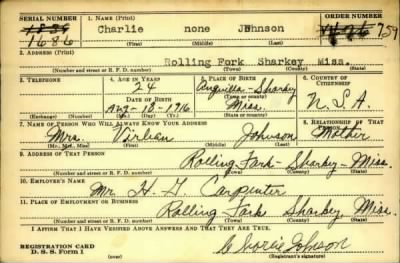 SERIAL NUMBER 1. NAME (Print) ORDER NUMBER
1686 Charlie none Johnson 759
(First) (Middle) (Last)
2. ADDRESS (Print)
Rolling Fork Sharkey Miss.
(Number and street or R. F. D. number) (Town) (County) (State)
3. TELEPHONE 4. AGE IN YEARS 5. PLACE OF BIRTH 6. COUNTRY OF CITIZENSHIP
24 Anguilla-Sharkey
DATE OF BIRTH (Town or county)
Aug-18-1916 Miss. U.S.A.
(Exchange) (Number) (Mo.) (Day) (Yr.) (State or country)
7. NAME OF PERSON WHO WILL ALWAYS KNOW YOUR ADDRESS 8. RELATIONSHIP OF THAT PERSON
Mrs. Johnson Mother
(Mr., Mrs., Miss) (First) (Middle) (Last)
9. ADDRESS OF THAT PERSON
Rolling Fork-Sharkey-Miss.
(Number and street or R. F. D. number) (Town) (County) (State)
10. EMPLOYER'S NAME
Mr. H. Carpenter
11. PLACE OF EMPLOYMENT OR BUSINESS
Rolling Fork Sharkey Miss.
(Number and street or R. F. D. number) (Town) (County) (State)
I AFFIRM THAT I HAVE VERIFIED ABOVE ANSWERS AND THAT THEY ARE TRUE.
REGISTRATION CARD
D. S. S. Form 1 Charlie Johnson
(Registrant's signature)